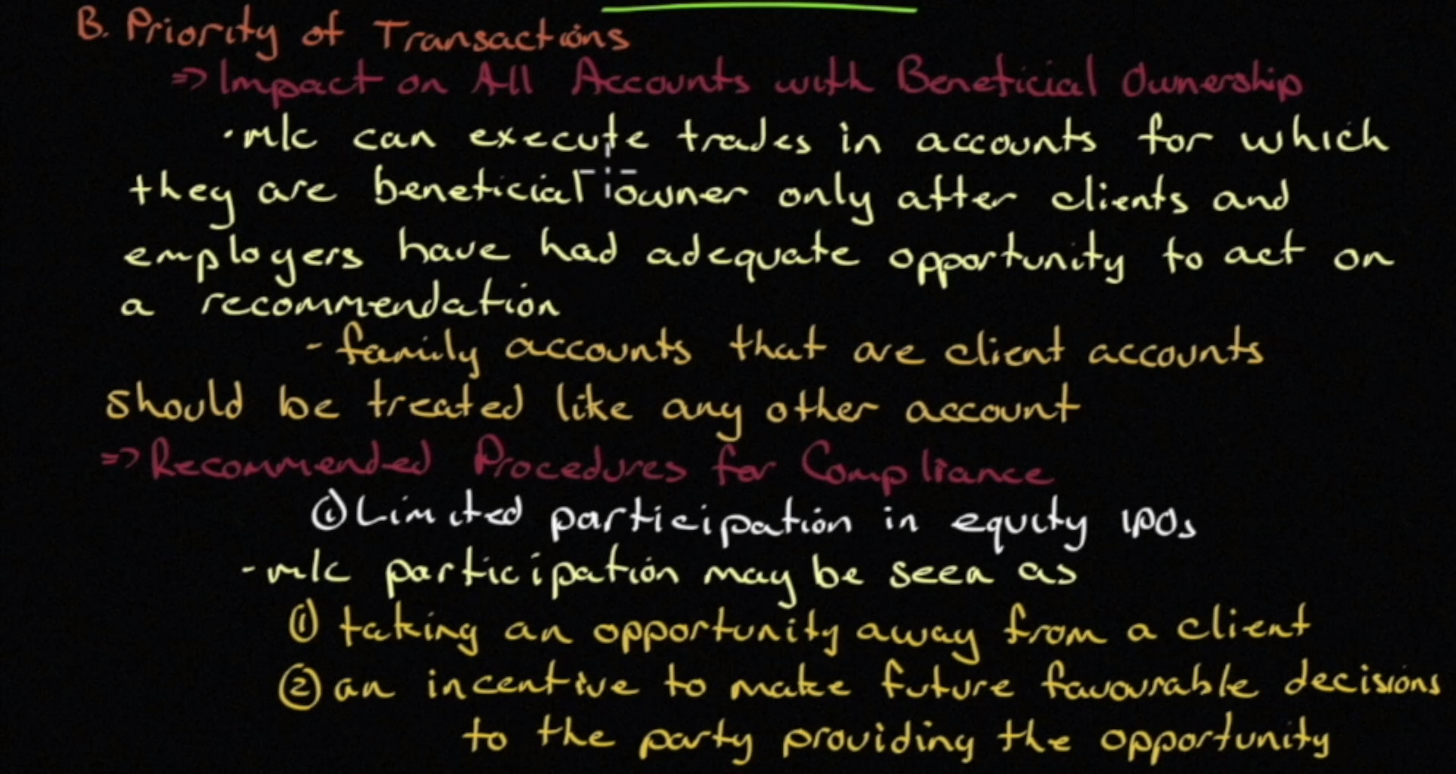 B. Priority of Transactions
=> Impact on All Accounts with Beneficial Ownership
· m/c can execute trades in accounts for which
they are beneficial owner only after clients and
employers have had adequate opportunity to act on
a recommendation
- family accounts that are client accounts
should be treated like any other account
=> Recommended Procedures for Compliance
① Limited participation in equity IPOs
- m/c participation may be seen as
① taking an opportunity away from a client
② an incentive to make future favourable decisions
to the party providing the opportunity